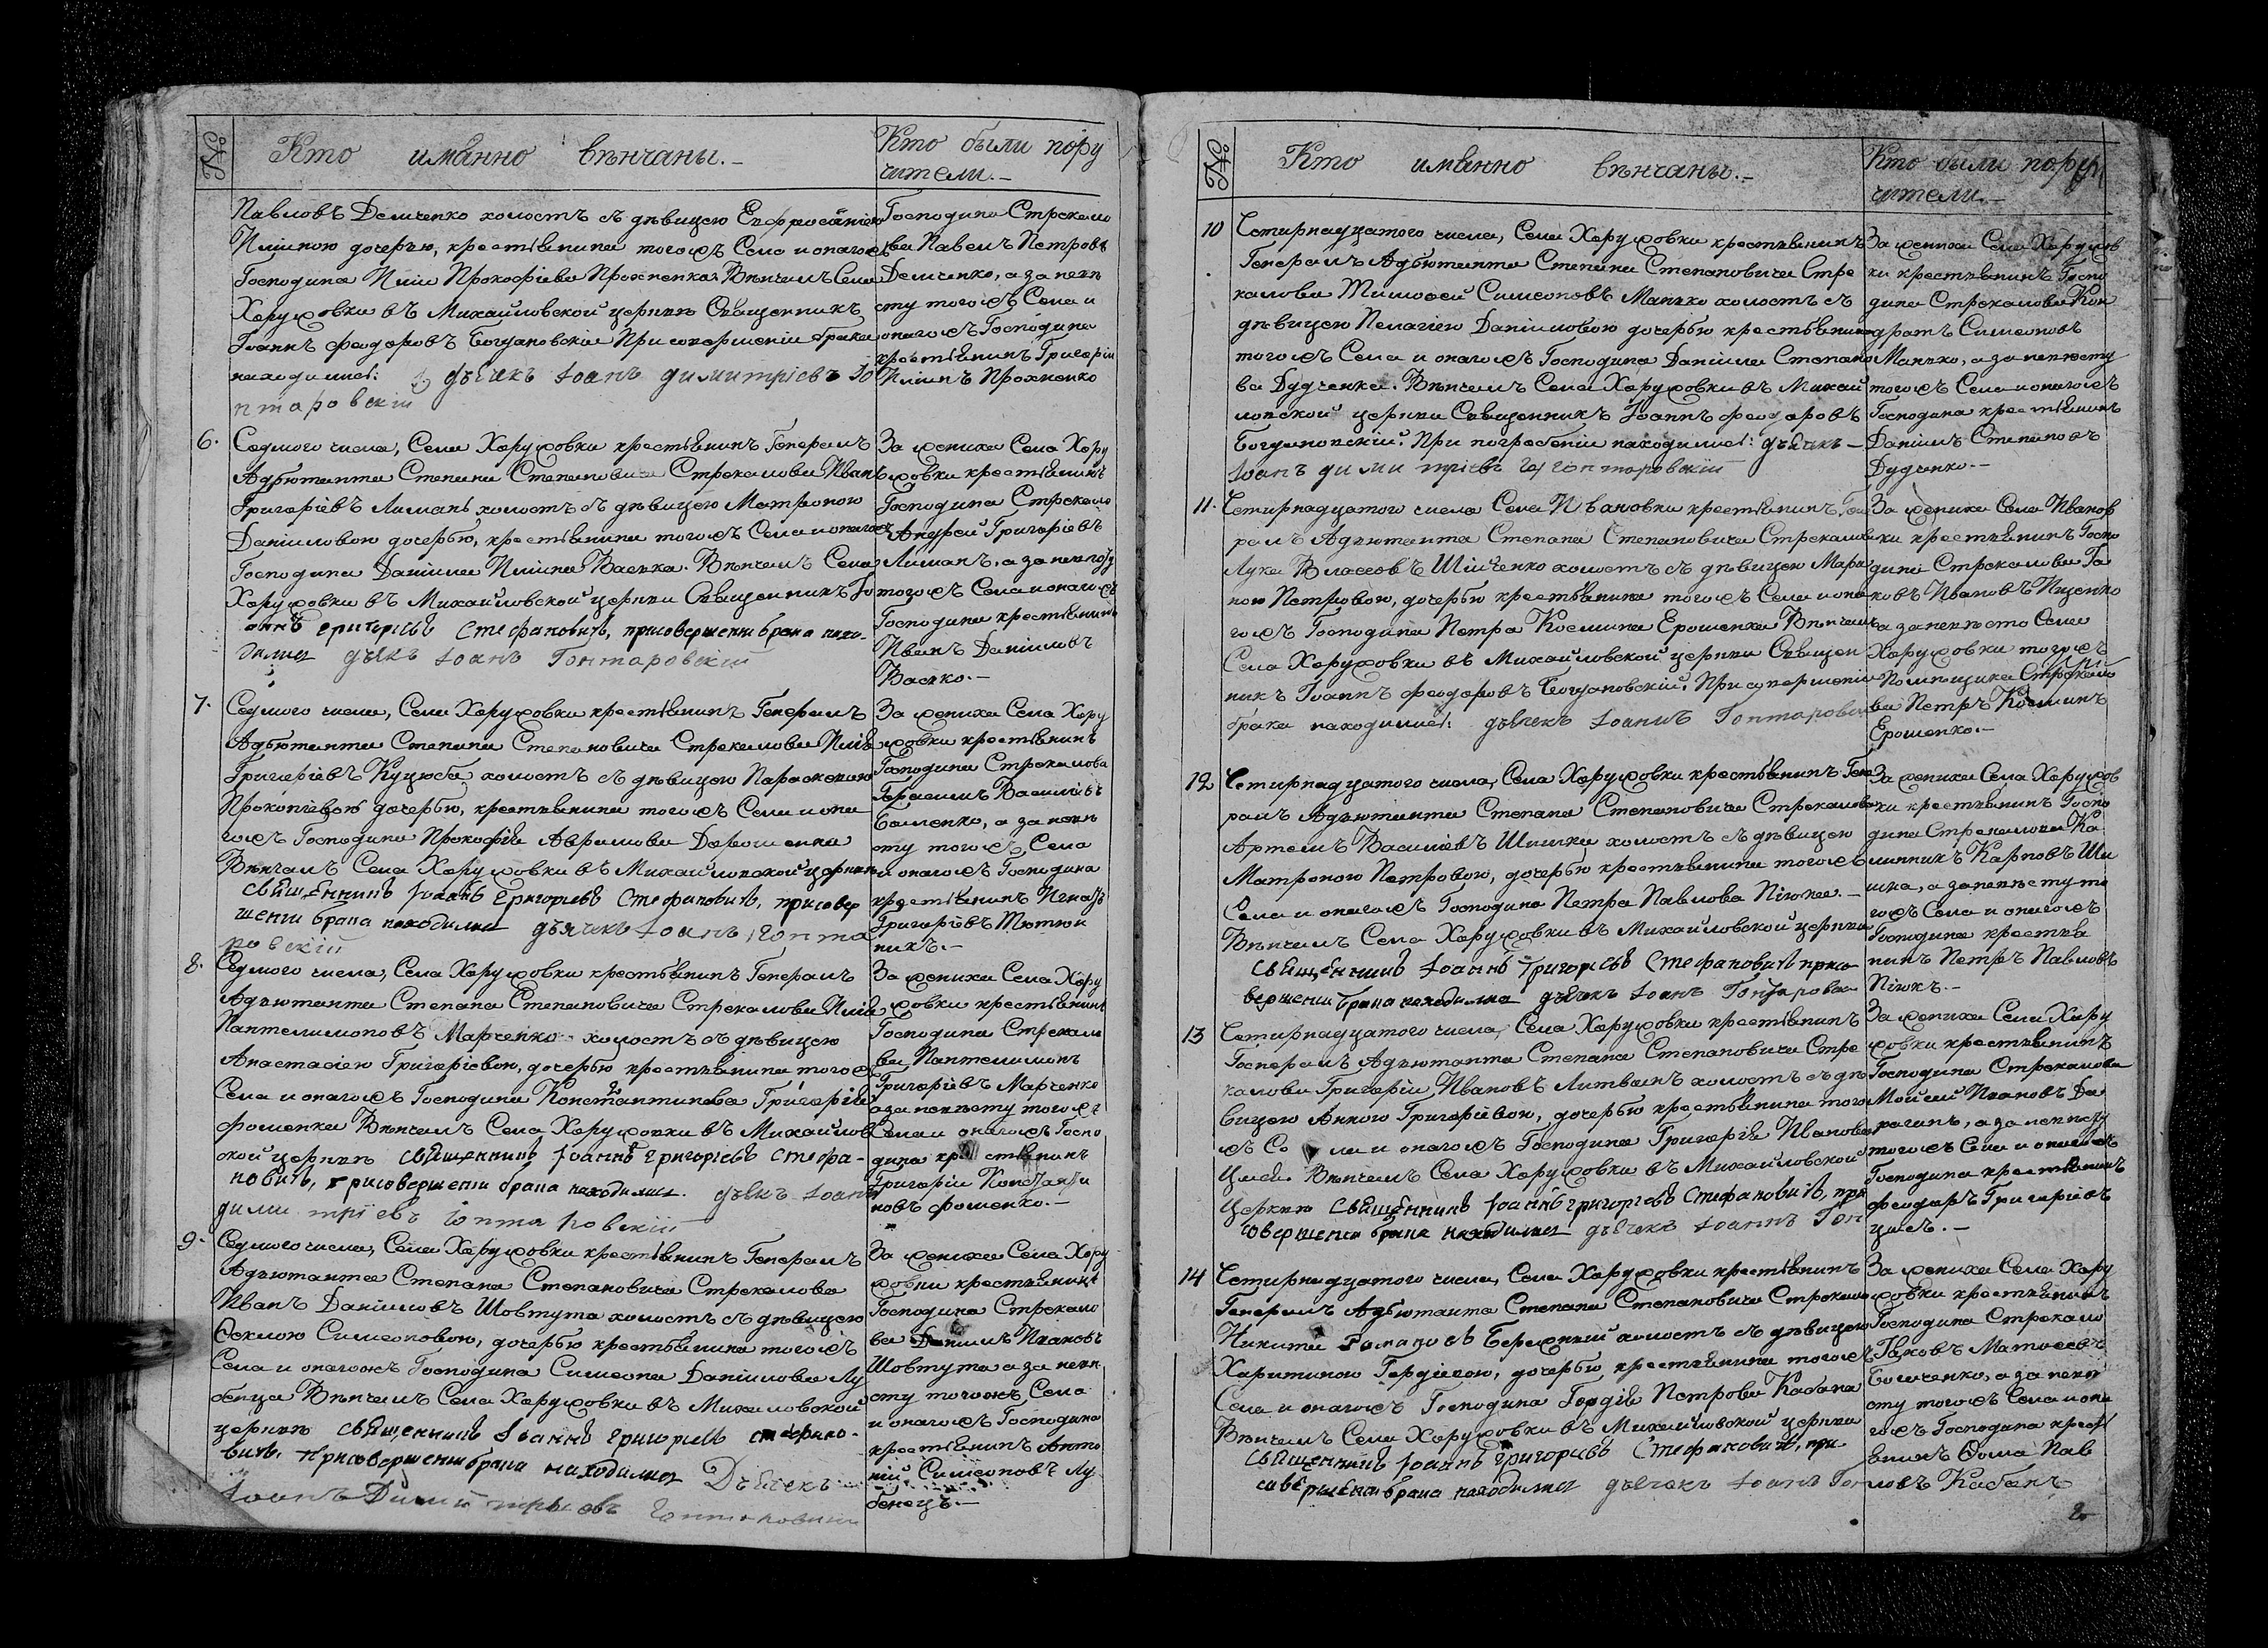 №
Кто именно венчаны.-
Кто были пору
чители.-
Павловъ Демченко холостъ съ дѣвицею Евфросиніею
Иліиною дочерью, крестьянина тогожъ Села и онагожъ
Господина Иліи Прокофіева Прохненка. Вѣнчалъ Села
Харуховки въ Михайловской церкви Священникъ
Іоаннъ Феодоровъ Богдановскій При совершеніи брака
находились: дьячекъ Іоанъ димитріевъ Го
нтаровскій
Господина Стрекало
ва Павелъ Петровъ
Демченко, а за невѣ
сту тогожъ Села и
онагожъ Господина
крестьянинъ Григорій
Иліинъ Прохненко
6.
Седмого числа, Села Харуховки крестьянинъ Генералъ
Адъютанта Степана Степановича Стрекалова Иванъ
Григоріевъ Лиманъ холостъ съ дѣвицею Матроною
Даніиловою дочерью, крестьянина тогожъ Села и онагожъ
Господина Даніила Иліина Васька. Вѣнчалъ Села
Харуховки въ Михайловской церкви Священникъ Іо
аннъ Григорьевъ Стефановичъ, присовершении брака нахо-
дился дьякъ Іоанъ Гонтаровскій
За жениха Села Хару
ховки крестьянинъ
Господина Стрекало
Андрей Григоріевъ
Лиманъ, а за невѣсту
тогожъ Села и онагожъ
Господина крестьянинъ
Иванъ Даніиловъ
Васько.-
7.
Седмого числа, Села Харуховки крестьянинъ Генералъ
Адъютанта Степана Степановича Стрекалова Илія
Григоріевъ Куцюба холостъ съ дѣвицею Параскевою
Прокопіевою дочерью, крестьянина тогожъ Села и она
гожъ Господина Прокофія Аврамова Дорошенка
Вѣнчалъ Села Харуховки въ Михайловской церкви
священникъ Іоаннъ Григорьевъ Стефановичъ, присовер
шении брака находился дьячекъ Іоанъ Гонта
ровскій
За жениха Села Хару
ховки крестьянинъ
Господина Стрекалова
Герасимъ Василіевъ
а за невѣ
сту тогожъ Села
и онагожъ Господина
крестьянинъ Игнатъ
Григоріевъ Тютюн
никъ.-
8.
Седмого числа, Села Харуховки крестьянинъ Генералъ
Адъютанта Степана Степановича Стрекалова Илія
Пантелимоновъ Марченко холостъ съ дѣвицею
Анастасіею Григоріевою, дочерью крестьянина тогожъ
Села и онагожъ Господина Константинова Григорія
Фоменка Вѣнчалъ Села Харуховки въ Михайлов
ской церкви священникъ Іоаннъ Григорьевъ Стефа-
новичъ, присовершении брака находился. дьякъ Іоанъ
димитріевъ Гонтаровскій
За жениха Села Хару
ховки крестьянинъ
Господина Стрекало
ва Пантелимонъ
Григоріевъ Марченко
а за невѣсту тогожъ
Села и онагожъ Госпо
дина крестьянинъ
Григорій Константи
новъ Фоменко.-
9.
Седмого числа, Села Харуховки крестьянинъ Генералъ
Адъютанта Степана Степановича Стрекалова
Иванъ Даніиловъ Шовтута холостъ съ дѣвицею
Феклою Симеоновою, дочерью крестьянина тогожъ
Села и онагожъ Господина Симеона Даніилова Лу
бенца Вѣнчалъ Села Харуховки въ Михайловской
церкви священникъ Іоаннъ Григорьевъ Стефано-
вичъ, присовершении брака находился Дьячекъ
Іоанъ Димитріевъ Гонтаровскій
За жениха Села Хару
ховки крестьянинъ
Господина Стрекало
ва Даніилъ Ивановъ
Шовтута а за невѣ
сту тогожъ Села
и онагожъ Господина
крестьянинъ Анто
ній Симеоновъ Лу
бенецъ.-
№
Кто именно венчаны.-
Кто были пору
чители.-
10
Четирнадцатого числа, Села Харуховки крестьянинъ
Генералъ Адъютанта Степана Степановича Стре
калова Тимофей Симеоновъ Манько холостъ съ
дѣвицею Пелагіею Даніиловою дочерью крестьянина
тогожъ Села и онагожъ Господина Даніила Степано
ва Дудченка. Вѣнчалъ Села Харуховки въ Михай
ловской церкви Священникъ Іоаннъ Феодоровъ
Богдановскій. При погребеніи находились: дьячекъ -
Іоанъ димитріевъ Гонтаровскій
За жениха Села Харухов
ки крестьянинъ Госпо
дина Стрекалова Кон
дратъ Симеоновъ
Манько, а за невѣсту
тогожъ Села и онагожъ
Господина крестьянинъ
Даніилъ Степановъ
Дудченко.-
11.
Четирнадцатого числа Села Ивановки крестьянинъ Гене
ралъ Адъютанта Степана Степановича Стрекалова
Лука Власовъ Шійченко холостъ съ дѣвицею Мари
ною Петровою, дочерью крестьянина тогожъ Села и она
гожъ Господина Петра Косьмина Ерошенка Вѣнчалъ
Села Харуховки въ Михайловской церкви Священ
никъ Іоаннъ Феодоровъ Богдановскій. При совершеніи
брака находились: дьячекъ Іоаннъ Гонтаровскій
За жениха Села Иванов
ки крестьянинъ Госпо
дина Стрекалова Яковъ Ивановъ Ищенко
а за невѣсту Села
Харуховки тогожъ
Помещика Стрекало
ва Петръ Косминъ
Ерошенко.-
12
Четирнадцатого числа, Села Харуховки крестьянинъ Гене
ралъ Адъютанта Степана Степановича Стрекалова
Артемъ Василіевъ Шишка холостъ съ дѣвицею
Матроною Петровою, дочерью крестьянина тогожъ
Села и онагожъ Господина Петра Павлова Півня.-
Вѣнчалъ Села Харуховки въ Михайловской церкви
священникъ Іоаннъ Григорьевъ Стефановичъ присо-
вершении брака находился дьячекъ Іоанъ Гонтаровскій
За жениха Села Харухов
ки крестьянинъ Госпо
дина Стрекалова Ка
линникъ Карповъ Ши
шка, а за невѣсту то
гожъ Села и онагожъ
Господина крестья
нинъ Петръ Павловъ
13
Четирнадцатого числа, Села Харуховки крестьянинъ
Генералъ Адъютанта Степана Степановича Стре
калова Григорій Ивановъ Литвинъ холостъ съ дѣ
вицею Анною Григоріевою, дочерью крестьянина того
жъ Села и онагожъ Господина Григорія Иванова
Вѣнчалъ Села Харуховки въ Михайловской
церкви священникъ Іоаннъ Григорьевъ Стефановичъ, при
совершении брака находился дьячекъ Іоаннъ Гон
За жениха Села Хару
ховки крестьянинъ
Господина Стрекалова
Мойсей Ивановъ
а за невѣсту
тогожъ Села и онагожъ
Господина крестьянинъ
Феодоръ Григоріевъ
14
Четирнадцатого числа, Села Харуховки крестьянинъ
Генералъ Адъютанта Степана Степановича Стрекалова
Никита Романовъ Бережный холостъ съ дѣвицею
Харитиною Гордіевою, дочерью крестьянина тогожъ
Села и онагожъ Господина Гордія Петрова Кабана
Вѣнчалъ Села Харуховки въ Михайловской церкви
священникъ Іоаннъ Григорьевъ Стефановичъ, при-
совершении брака находился дьячекъ Іоанъ Гон
За жениха Села Хару
ховки крестьянинъ
Господина Стрекало
Яковъ Матвеевъ
а за невѣ
сту тогожъ Села и она
гожъ Господина крест
янинъ Фома Пав
ловъ Кабанъ